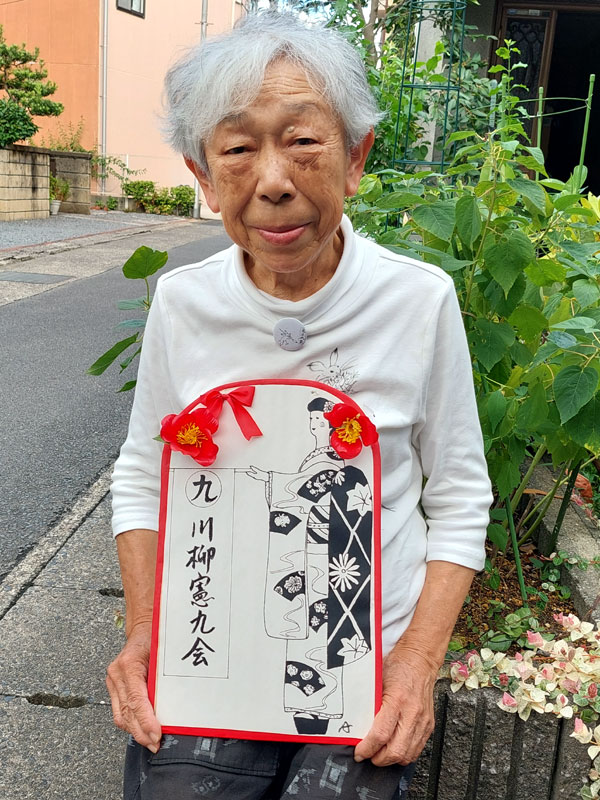 九
川柳憲九会
A